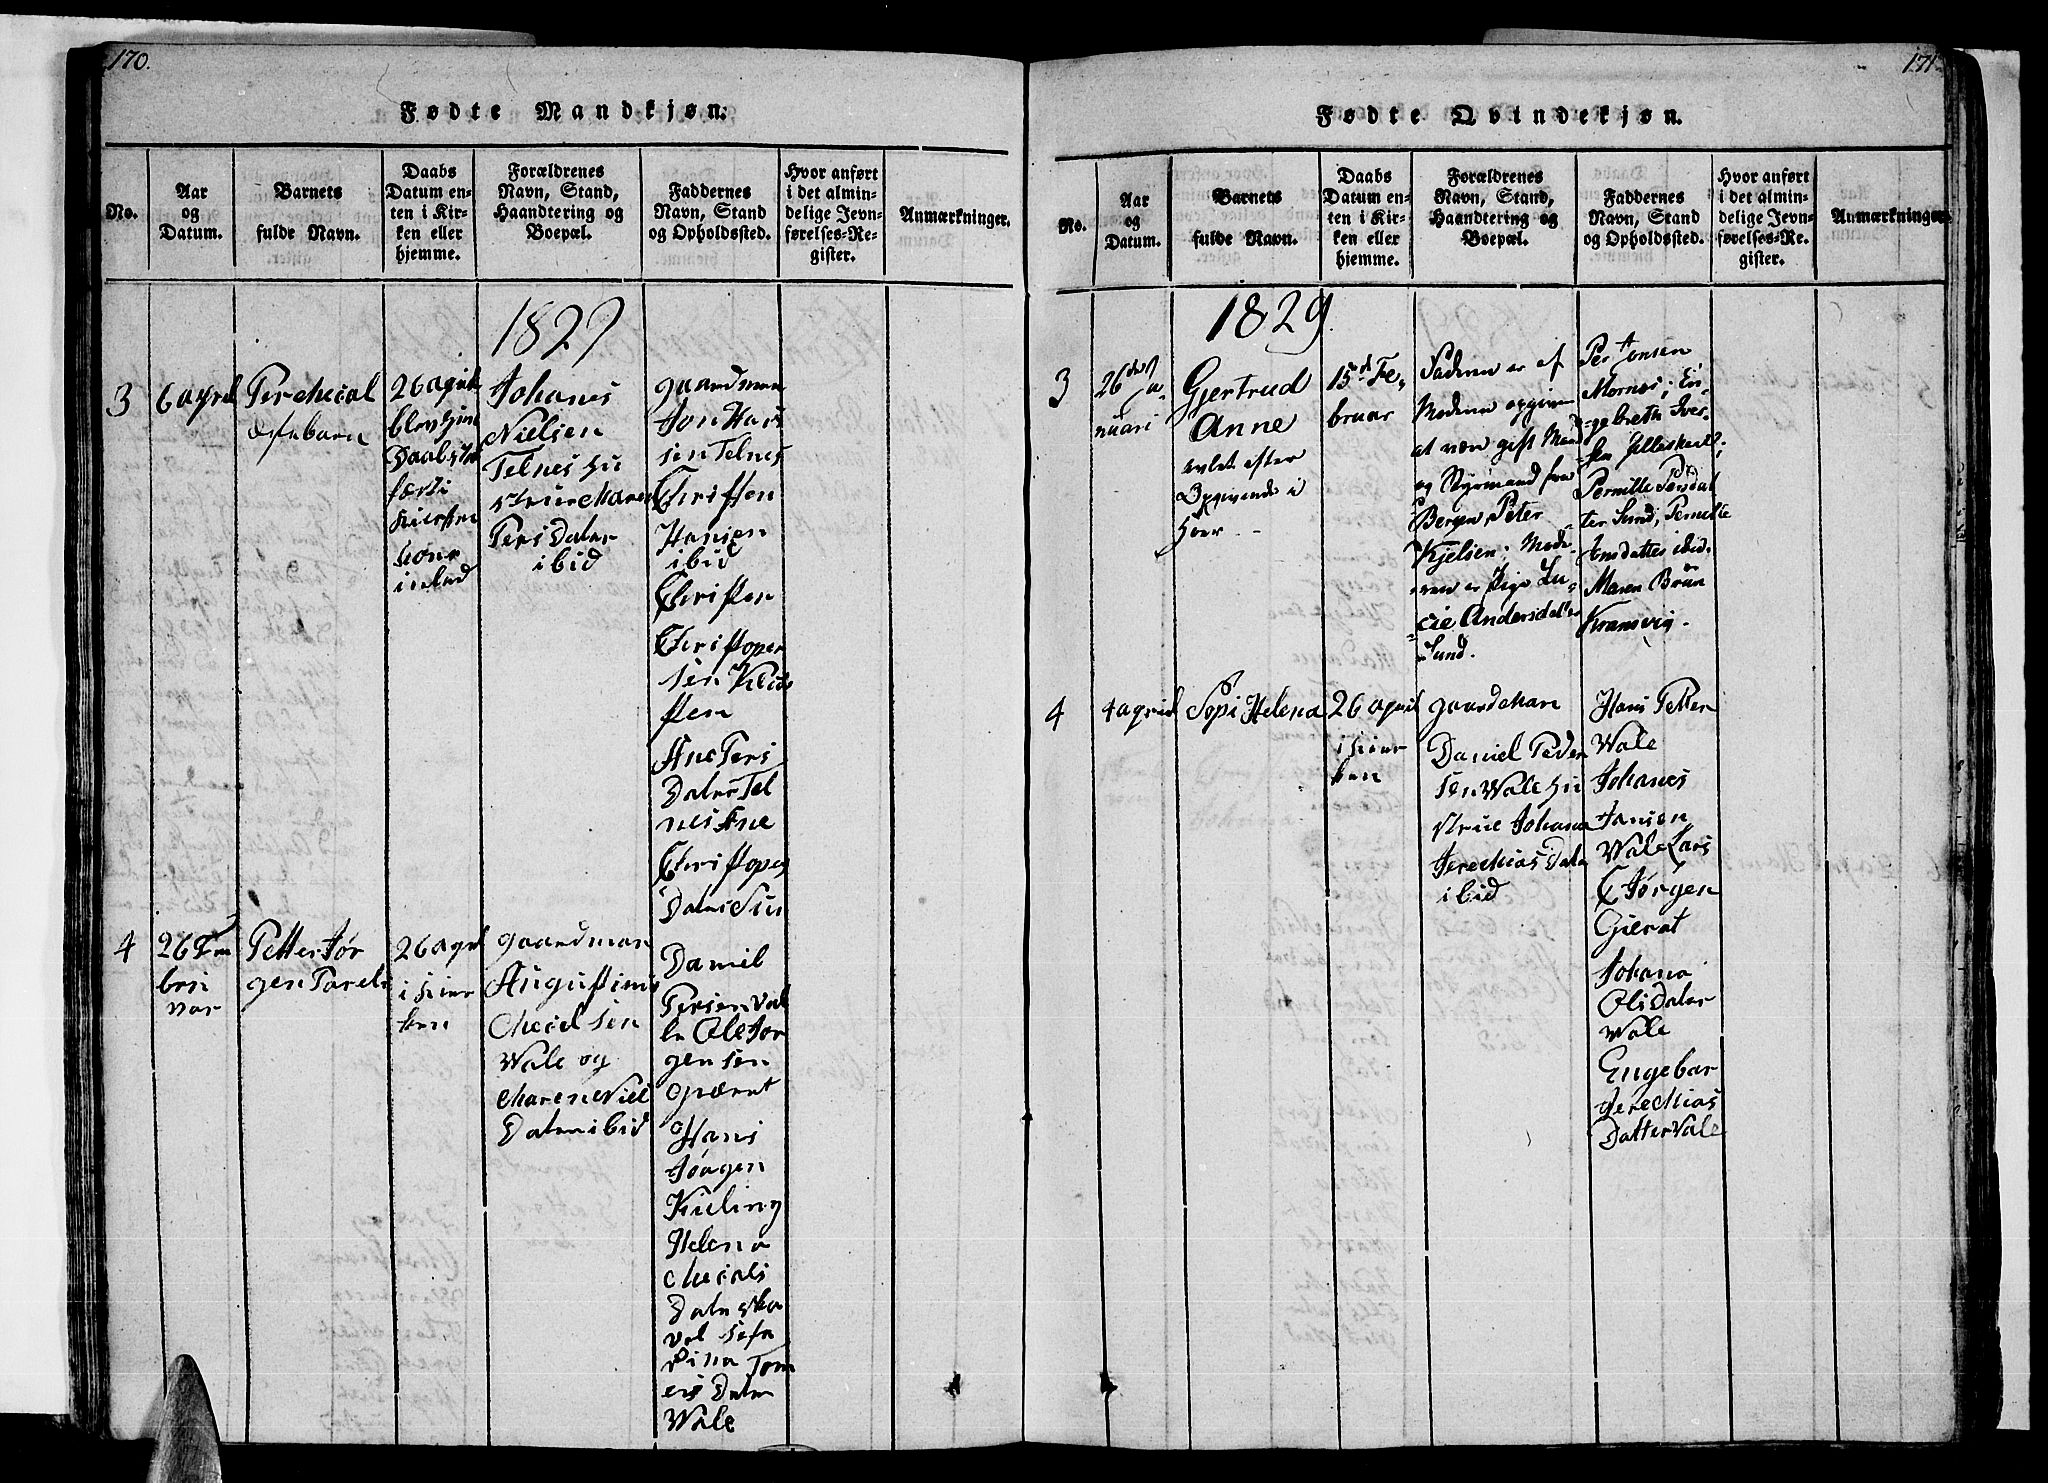 170.
Fødte Mandkjøn.
No.
Aar
og
Datum.
Barnets
fulde Navn.
Daabs
Datum en-
ten i Kir-
ken eller
hjemme.
Forældrenes
Navn, Stand,
Haandtering og
Boepæl.
Faddernes
Navn, Stand
og Opholdssted.
Hvor anført
i det almin-
delige Jevn-
førelses-Re-
gister.
Anmærkninger.
1829
3
6 april
26 april
blev hans
Daab
i
Johanes
Nielsen
Telnes hu
strue Maren
Pers Dater
ibid
gaardman
Jon Hans
sen Telnes
Christen
Hansen
ibid
Christen
Christoper
sen
sten
Ane Pers
Dater Tel
nes Ane
Christopers
Dater
4
26 Fe
bru
var
Petter Jør
gen Parel
26 april
i kier
ken
gaardman
Augustinus
Wale og
Maren Niel
Dater ibid
Daniel
Persen Val
Ole Jør
gensen
Hans
Jørgen
Kieling
Helena
Dater
Dater
Wale
171
Fødte Qvindekjøn.
No.
Aar
og
Datum.
Barnets
fulde Navn.
Daabs
Datum en-
ten i Kir-
ken eller
hjemme.
Forældrenes
Navn, Stand,
Haandtering og
Boepæl.
Faddernes
Navn, Stand
og Opholdssted.
Hvor anført
i det almin-
delige Jevn-
førelses-Re-
gister.
Anmærkninger.
1829.
3
26de Ja-
nuari
Gjertrud
Anne
avlet efter
Opgivende i
15de Fe-
bruar
Faderen er af
Moderen opgiven
at være gift Mand
og Styrmand fra
Bergen Peter
Kjelsen. Mode-
ren er Pige Lu-
cie Andersdatter
Sund.
Per Jonsen
Mornes; En-
gebreth Iver-
sen
Pernille Persdat
ter Sund, Pernille
Jonsdatter ibid.
Maren Brun
Kramvig.
4
4 april
Sopi Helena
26 april
i kier
ken
gaardman
Daniel Peder
sen Wale hu
strue Johana
Jeremias Dater
ibid
Hans Petter
Wale
Johanes
Jansen
Wale Lars
Jørgen
Johana
Ols Dater
Wale
Engebar
Jeremias
Datter Vale